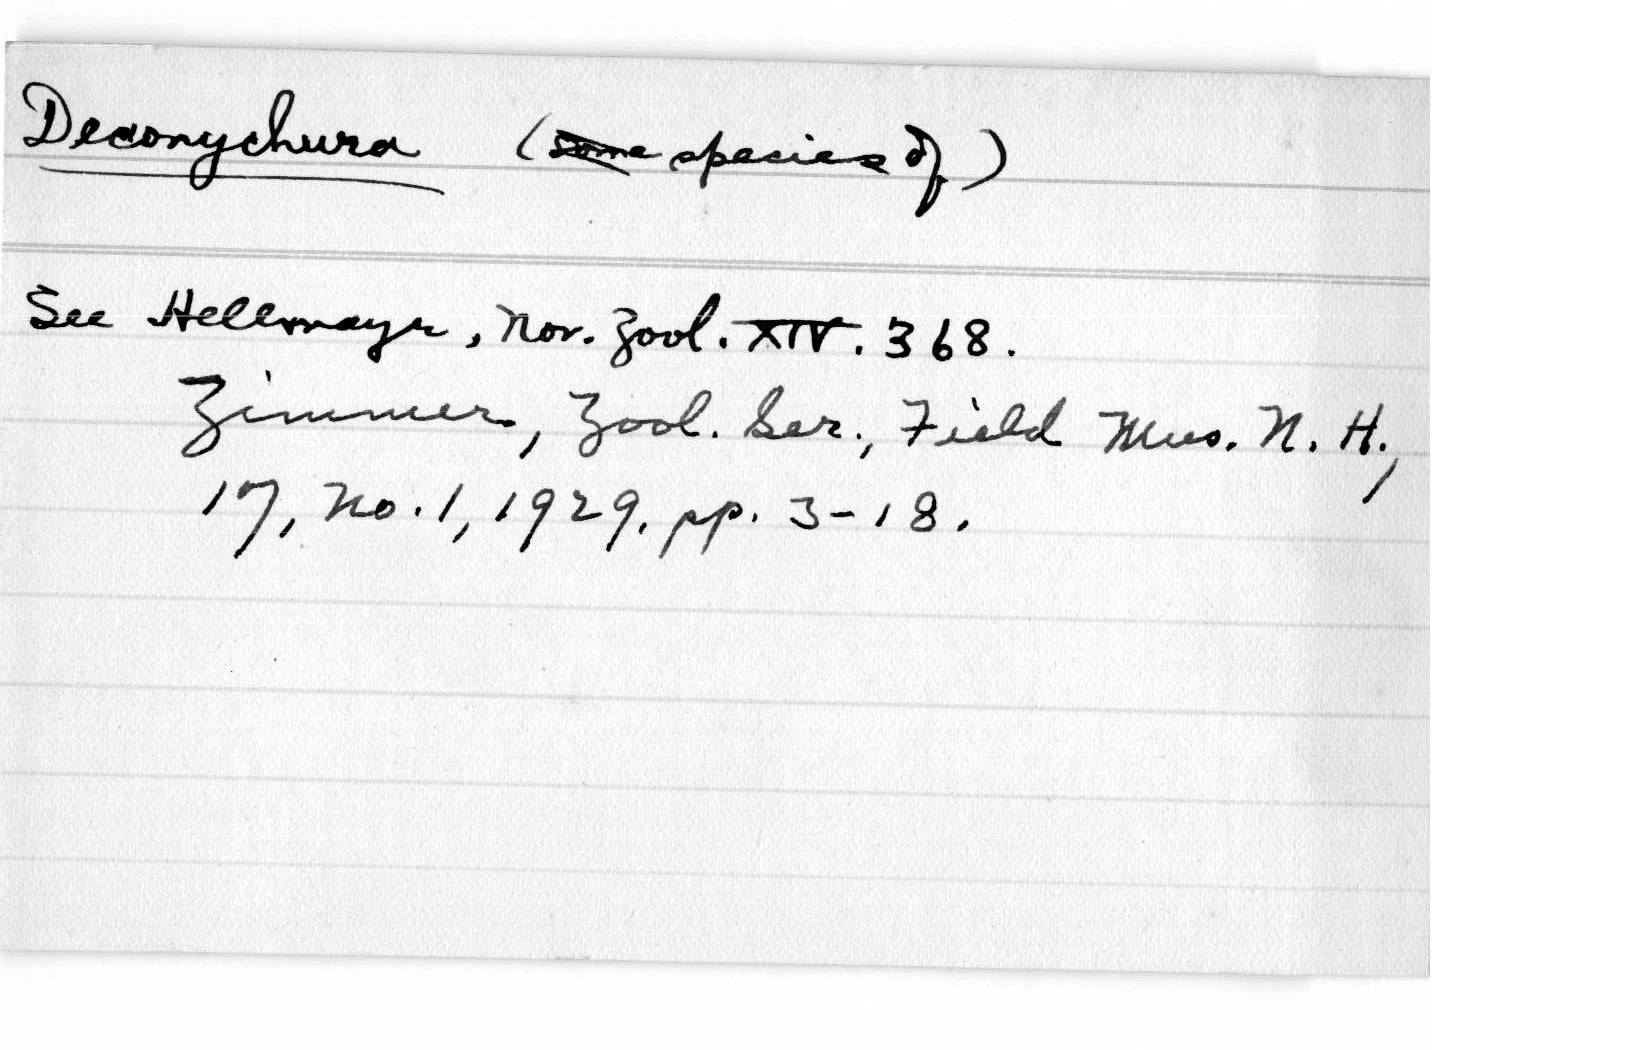 Deconychura (some species of)
See Hellmayr, Nov. Zool. XIV. 368.
Zimmer, Zool. Ser., Field Mus. N. H.,
17, No. 1, 1929, pp. 3-18.